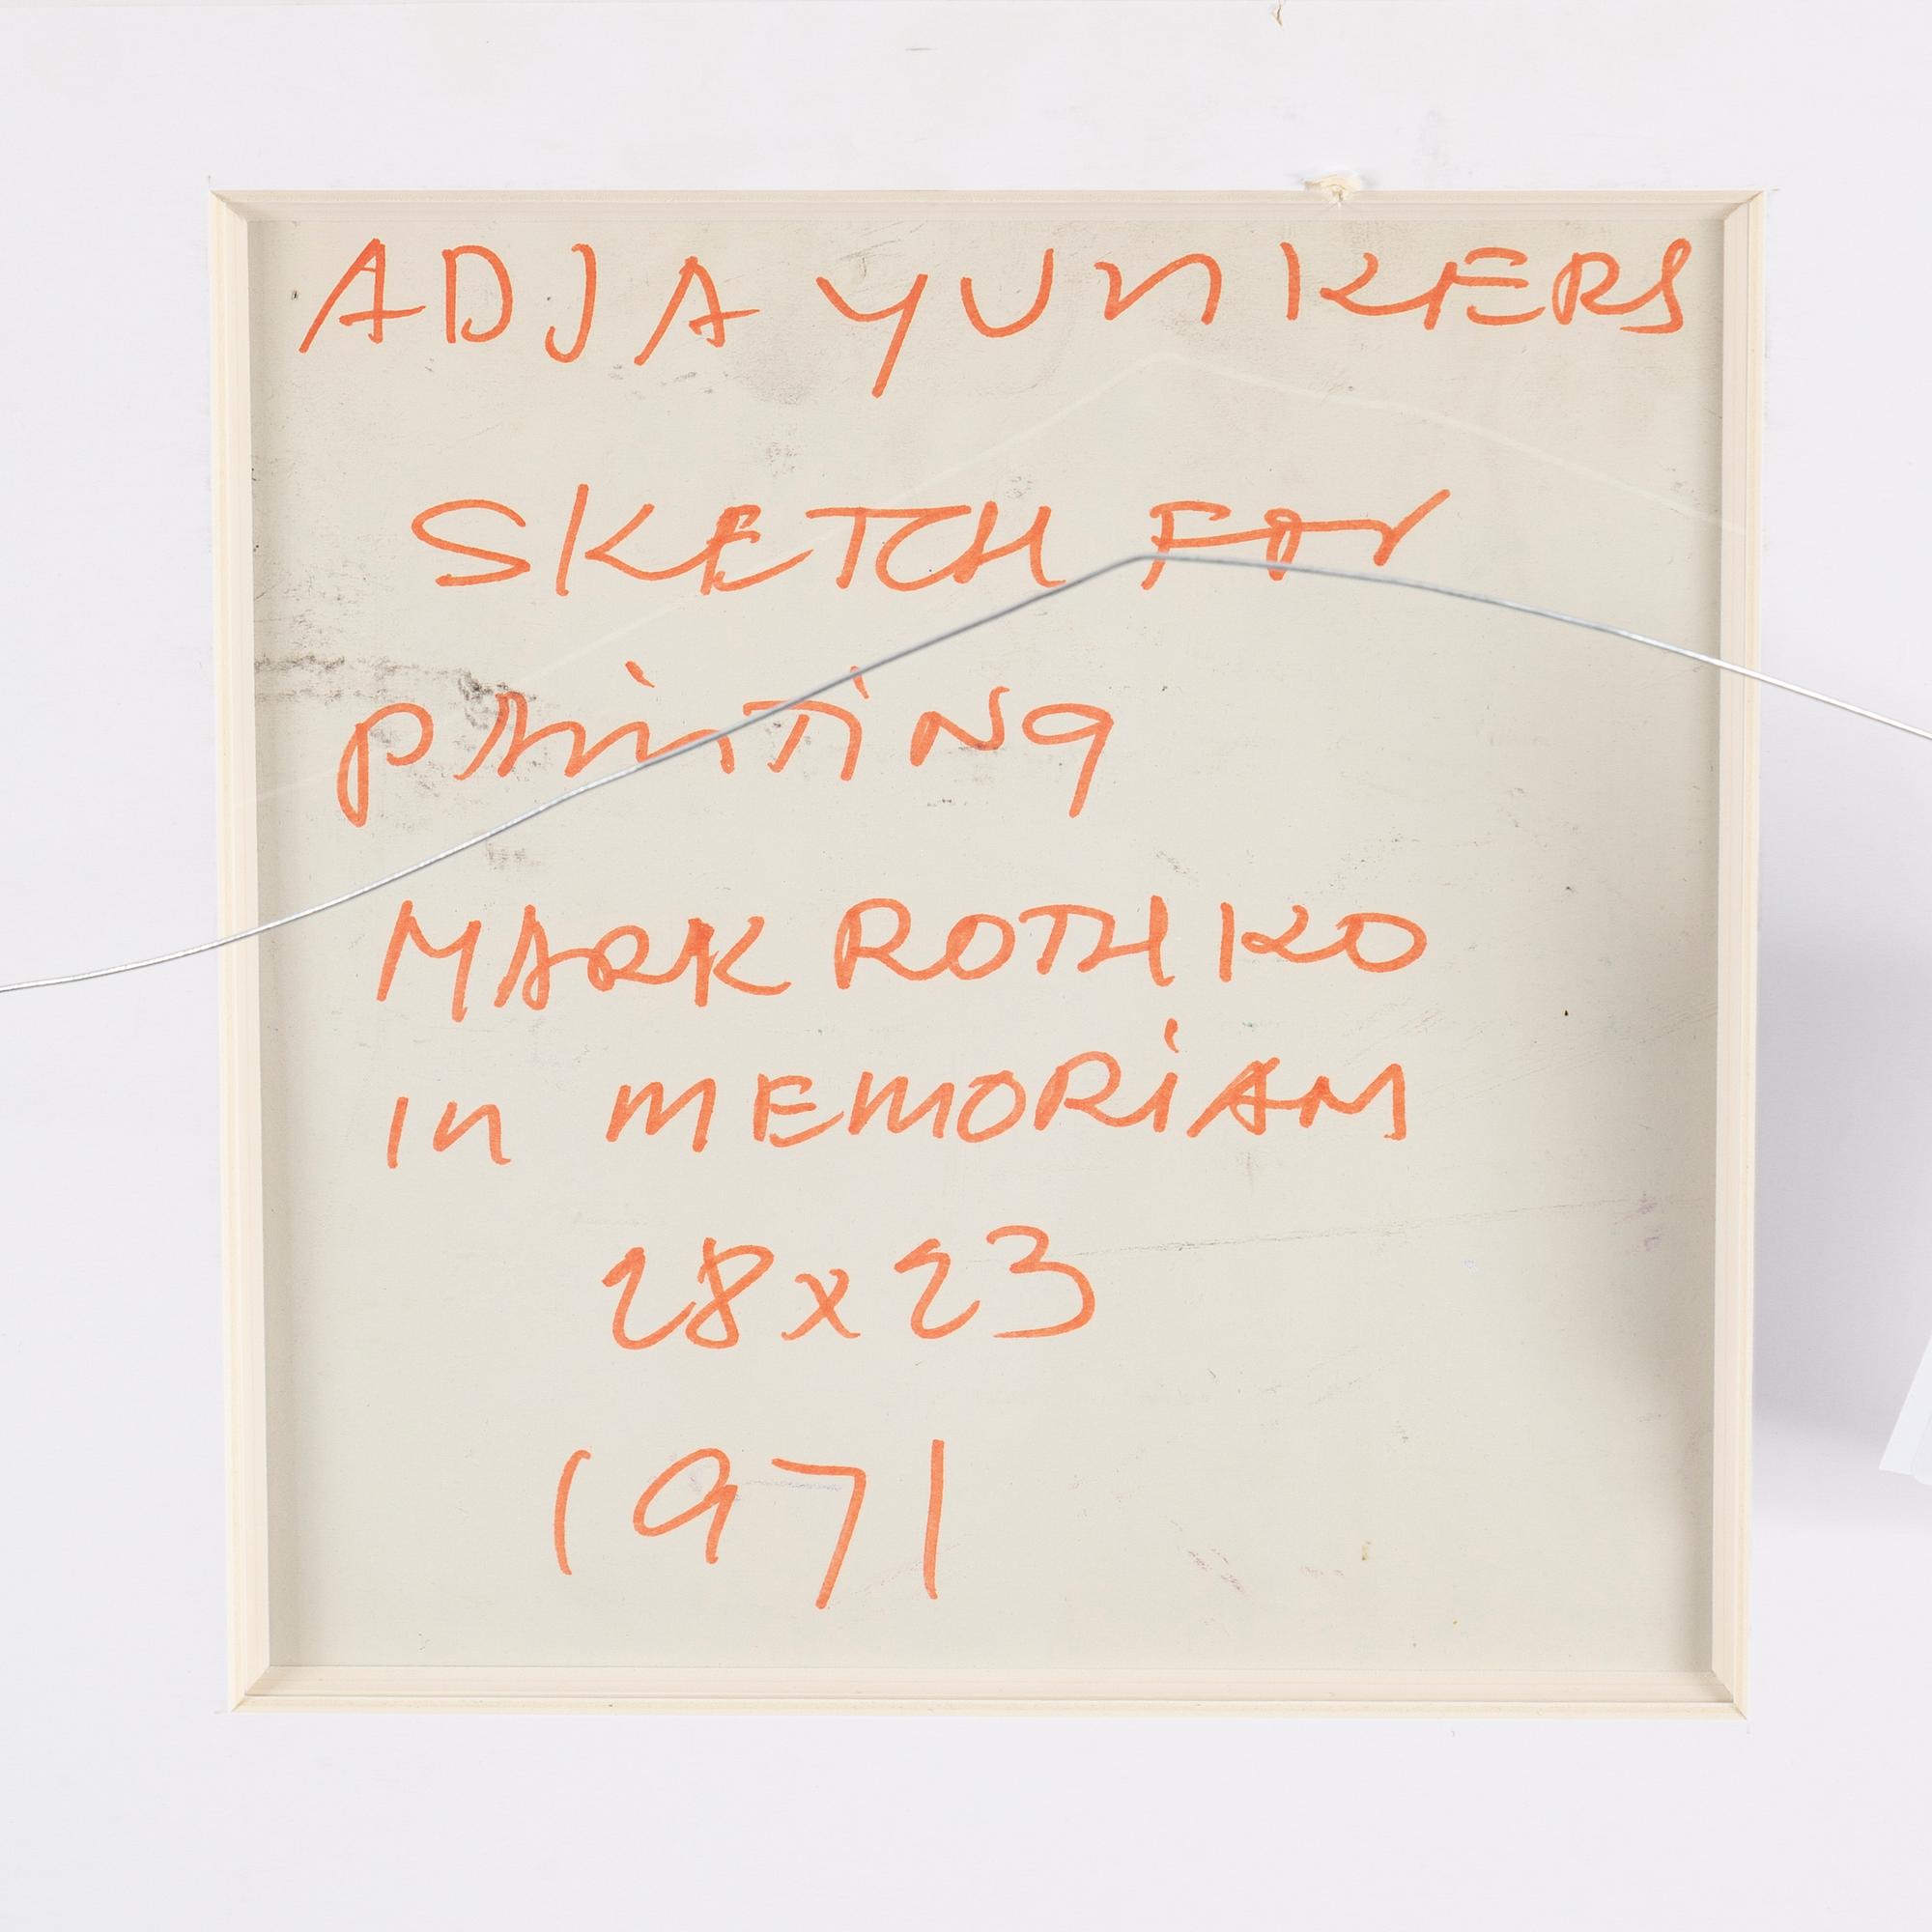 ADJA YUnKERS
SKETCH FOr
PAinTiNg
MARK ROTHKO
in MEMORiAM
28x23
1971